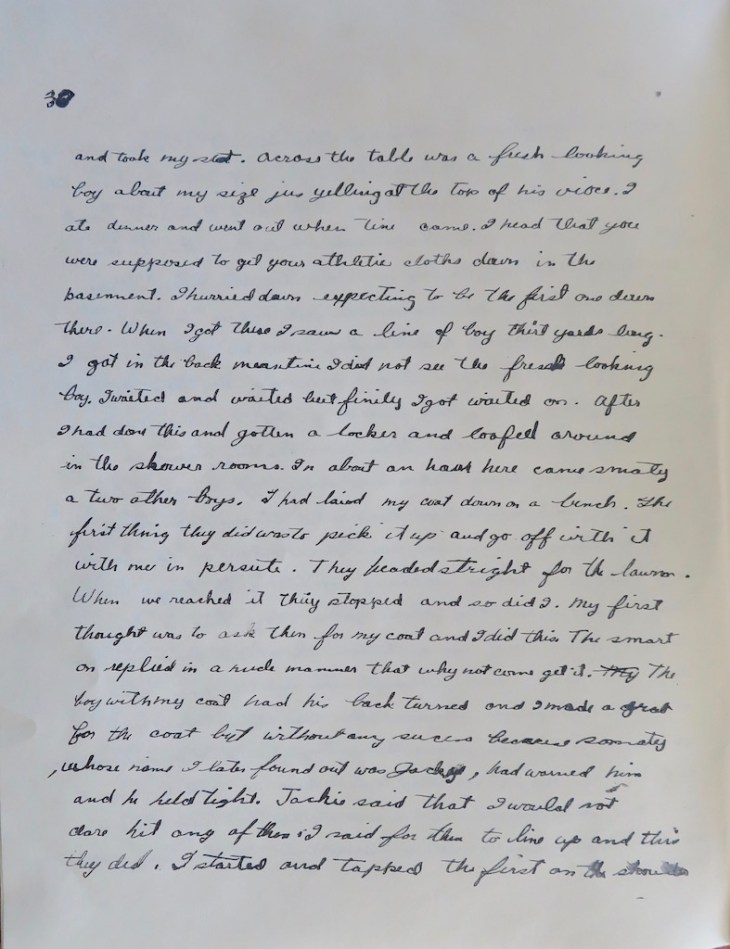 30
and took my seat. Across the table was a fresh looking
boy about my size jus yelling at the top of his vioce. I
ate dinner and went out when time came. I head that you
were supposed to get your athletic cloths down in the
basenment. I hurried down expecting to be the first one down
there. When I got there I saw a line of boy thirt yards long.
I got in the back meantime I did not see the fresh looking
boy. I waited and waited but finily I got waited on. After
I had done this and gotten a locker and loafed around
in the shower rooms. In about an hour here came smaty
a two other boys. I had laied my coat down on a bench. The
first thing they did was to pick it up and go off with it
with me in persute. They headed stright for the lawn.
When we reached it they stopped and so did I. My first
thought was to ask then for my coat and I did this The smart
on replied in a rude manner that why not come get it. My The
boy with my coat had his back turned and I made a grab
for the coat but without any succes because smaty
, whose name I later found out was Jackie, had warned him
and he held tight. Jackie said that I would not
dare hit any of then. I said for then to line up and this
they did. I started and tapped the first on the